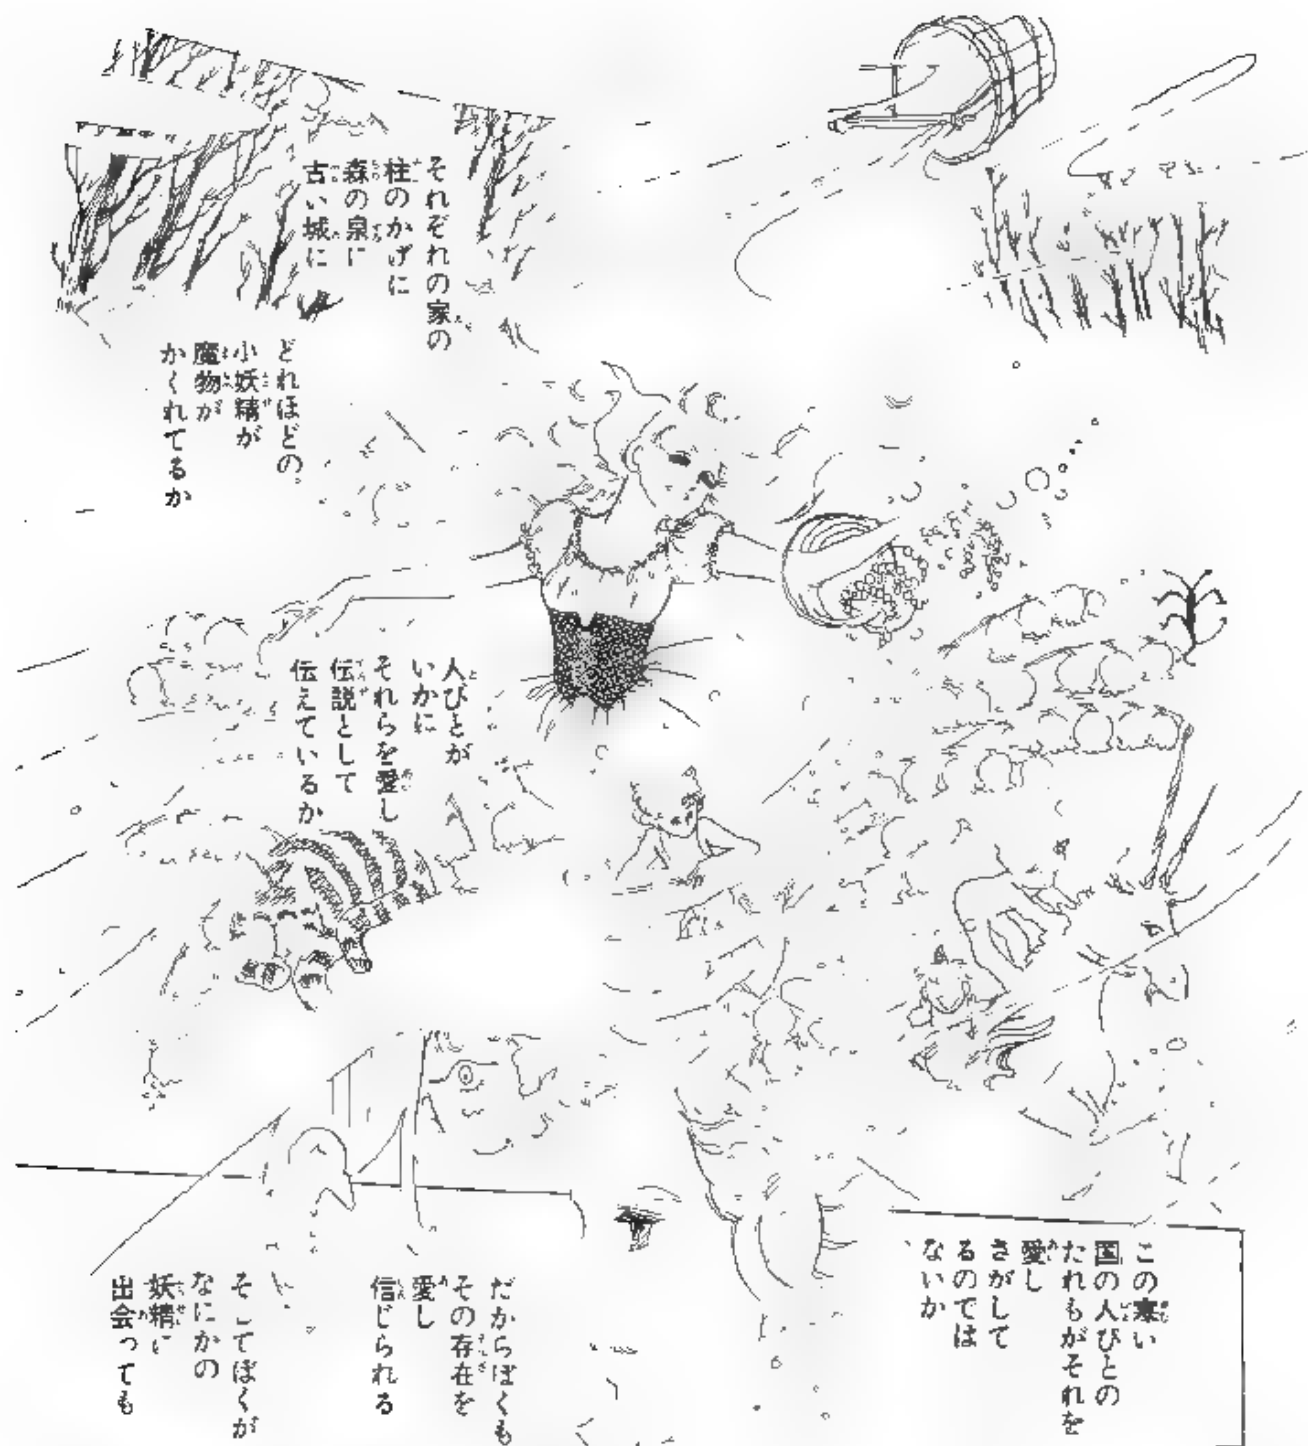 それぞれの家の
柱のかげに
森の泉に
古い城に
どれほどの
小妖精が
魔物が
かくれてるか
人びとが
いかに
それらを愛し
伝説として
伝えているか
この寒い
国の人びとの
たれもがそれを
愛し
さがして
るのでは
ないか
だからぼくも
その存在を
愛し
信じられる
そこてぼくが
なにかの
妖精に
出会っても